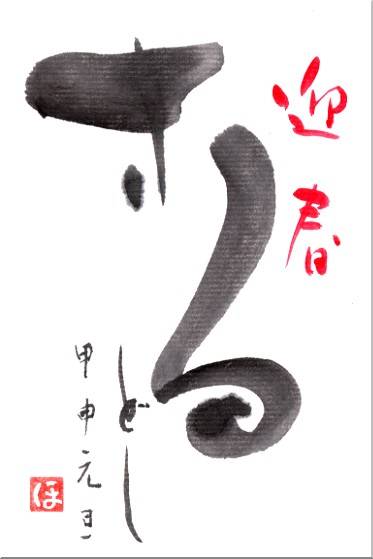 迎春
さる
どし
甲申元旦
ほ